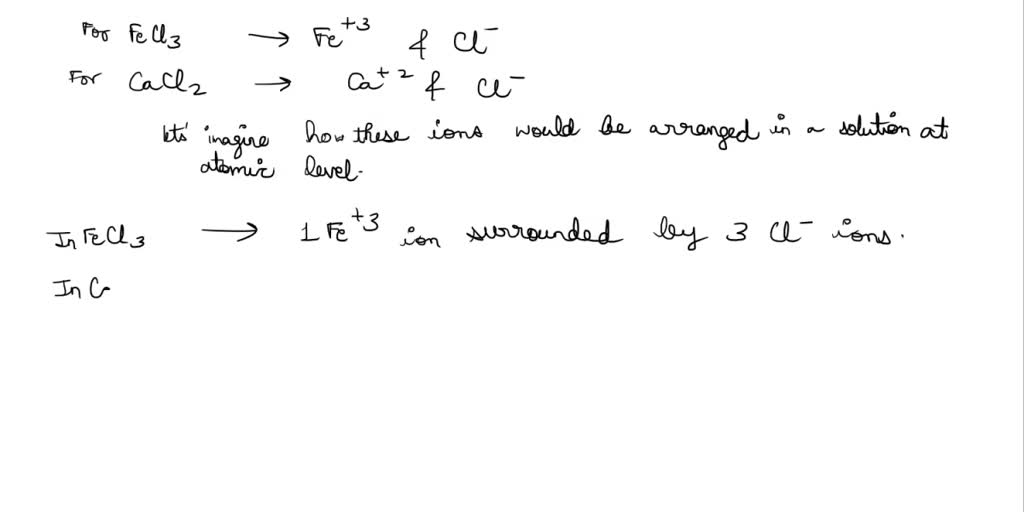 For FeCl3 → Fe+3 & Cl-
For CaCl2 → Ca+2 & Cl-
lets' imagine how these ions would be arranged in a solution at
atomic level.
In FeCl3 → 1 Fe+3 ion surrounded by 3 Cl- ions.
In C